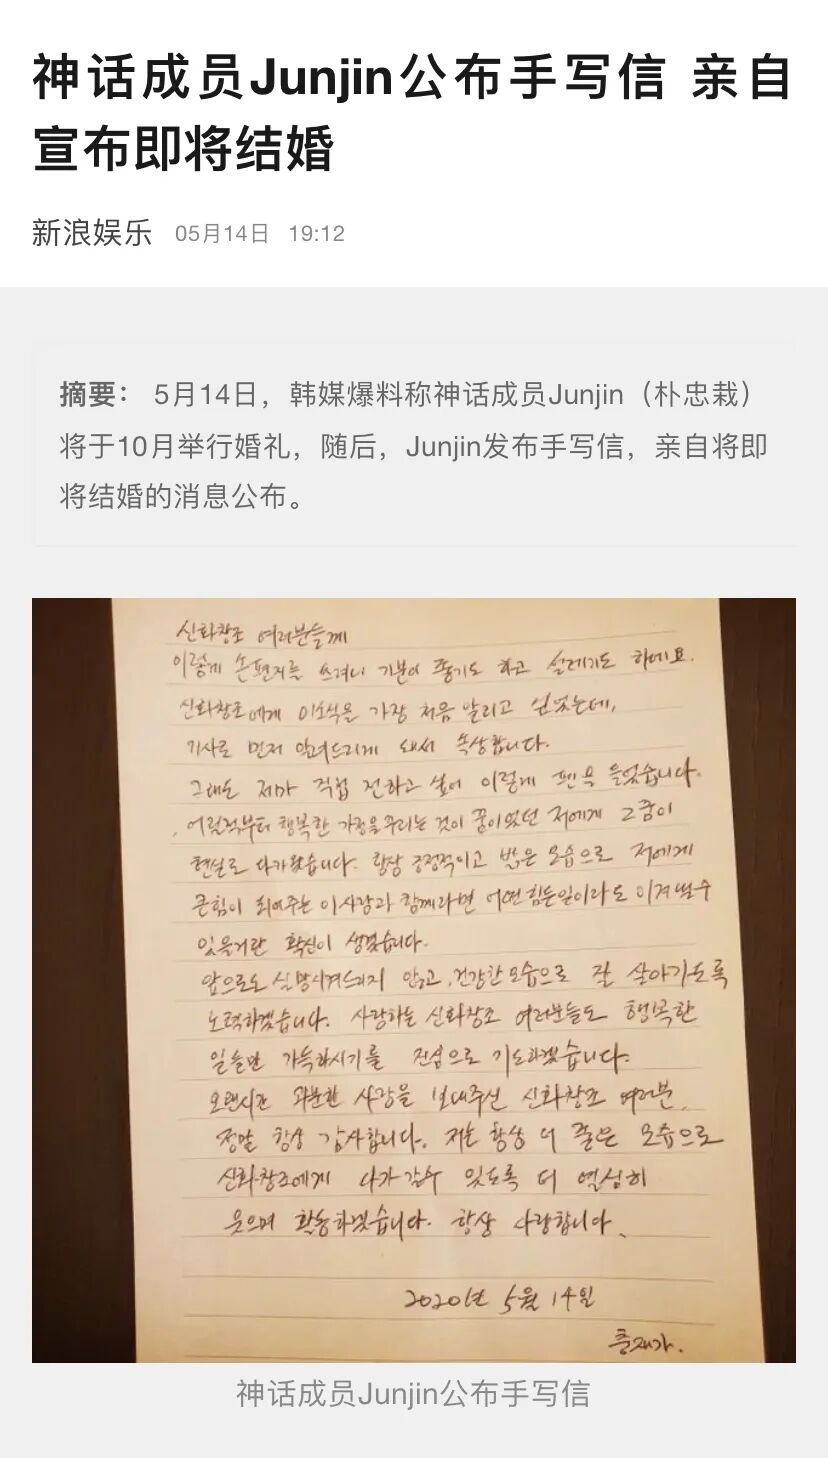 神话成员Junjin公布手写信 亲自
宣布即将结婚
新浪娱乐 05月14日 19:12
摘要： 5月14日，韩媒爆料称神话成员Junjin（朴忠栽）
将于10月举行婚礼，随后，Junjin发布手写信，亲自将即
将结婚的消息公布。
신화창조 여러분들께
이렇게 손편지를 쓰려니 기분이 좋기도 하고 설레기도 하네요.
신화창조에게 이소식을 가장 처음 알리고 싶었는데,
기사로 먼저 알려드리게 돼서 속상합니다.
그래도 제가 직접 전하고 싶어 이렇게 펜을 들었습니다.
어릴적부터 행복한 가정을꾸리는 것이 꿈이었던 저에게 그꿈이
현실로 다가왔습니다. 항상 긍정적이고 밝은 모습으로 저에게
큰힘이 되어주는 이사람과 함께라면 어떤힘든일이라도 이겨낼수
있을거란 확신이 생겼습니다.
앞으로도 실망시켜드리지 않고, 건강한모습으로 잘 살아가도록
노력하겠습니다. 사랑하는 신화창조 여러분들도 행복한
일들만 가득하시기를 진심으로 기도하겠습니다.
오랜시간 과분한 사랑을 보내주신 신화창조 여러분,
정말 항상 감사합니다. 저는 항상 더 좋은 모습으로
신화창조에게 다가갈수 있도록 더 열심히
웃으며 활동하겠습니다. 항상 사랑합니다.
2020년 5월 14일
충재가.
神话成员Junjin公布手写信